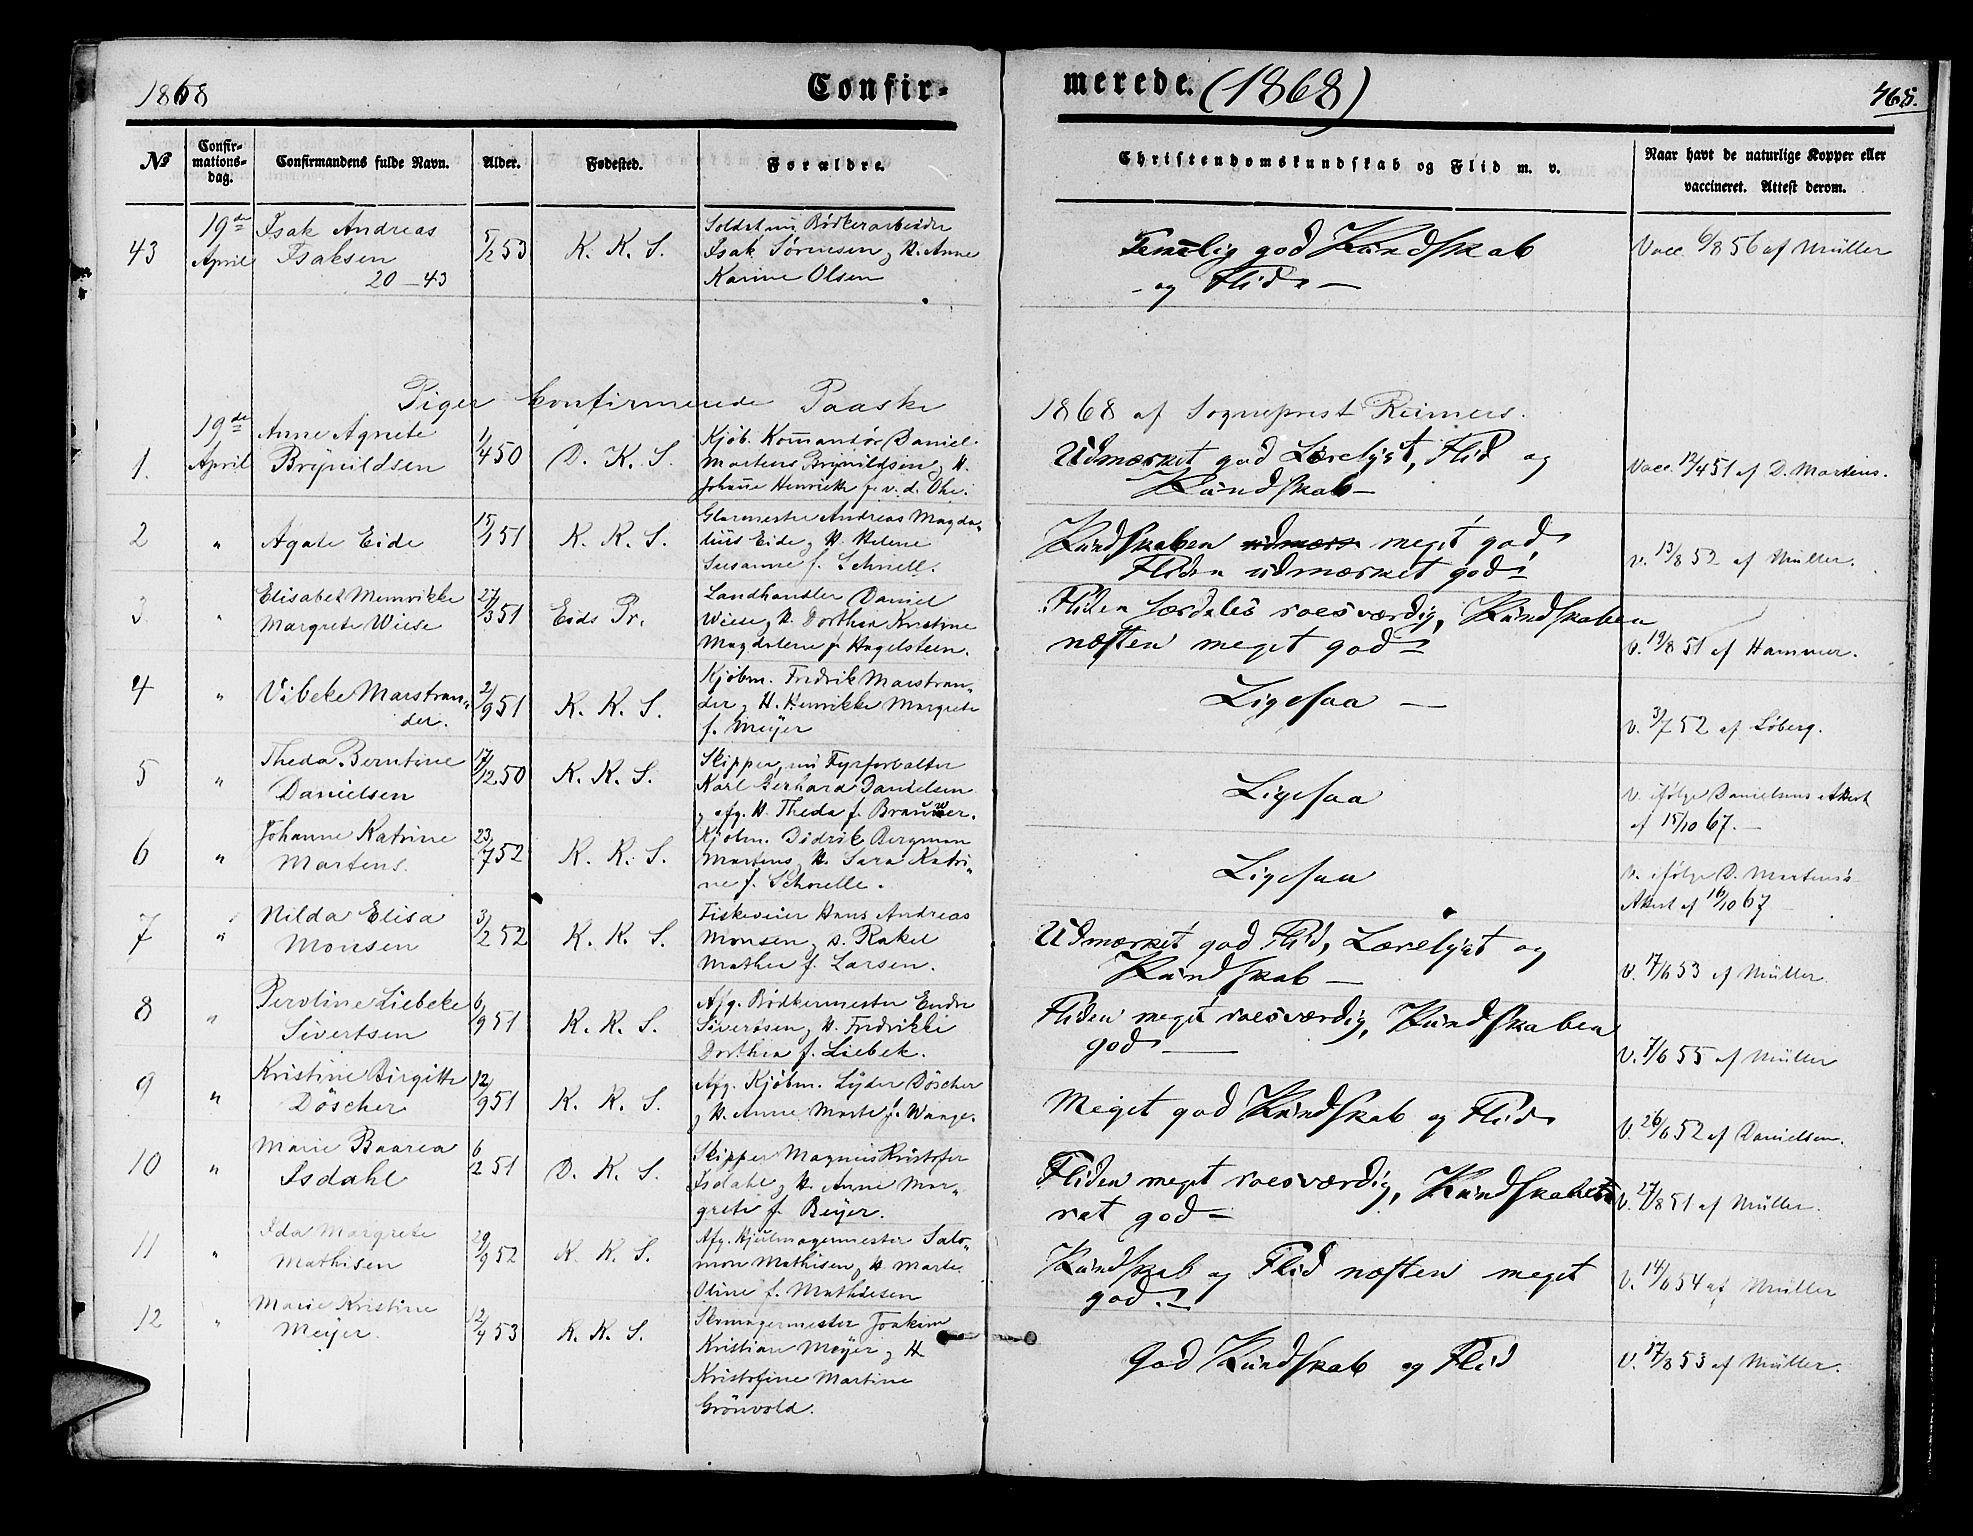 1868
Confir-
merede. (1868)
465.
No
Confir-
mations-
dag.
Confirmandens fulde Navn.
Alder.
Fødested.
Forældre.
Christendomskundskab og Flid m. v.
Naar havt de naturlige Kopper eller
vaccineret. Attest derom.
43
19de
April
Isak Andreas
Isaksen
20 - 43
5/2 53
K. K. S.
Soldat nu Bødkerarbeider
Isak Sørensen og H. Anne
Karine Olsen
Temelig god Kundskab
og Flid -
Vacc. 6/8 56 af Müller
Piger konfirmerede Paaske
1868 af Sogneprest Reimers.
1.
19de
April
Anne Agnete
Brynildsen
1/4 50
D. K. S.
Kjøb. Komandør Daniel
Martens Brynildsen og H.
Johanne Henriette f. v. d. Ohe.
Udmærket god Lærelyst, Flid og
Kundskab -
Vacc. 12/4 51 af D. Martens.
2
"
Agate Eide
15/1 51
K. K. S.
Glarmester Andreas Magda=
lius Eide og H. Helene
Susanne f. Schnell.
Kundskaben udmærk meget god
Fliden udmærket god
v. 13/8 52 af Müller.
3
"
Elisabet Memrikke
Margrete Wiese
27/3 51
Eids Pr.
Landhandler Daniel
Wiese og H. Dorthea Kristine
Magdalene f. Hagelsteen.
Fliden særdeles roesværdig, Kundskaben
næsten meget god
v. 19/8 51 af Hammer.
4
"
Vibeke Marstran=
der.
2/9 51
K. K. S.
Kjøbm. Fredrik Marstran=
der og H. Henrikke Margrete
f. Meyer
Ligesaa -
v. 3/7 52 af Løberg.
5
"
Theda Berntine
Danielsen
17/12 50
K. K. S.
Skipper, nu Fyrforvalter
Karl Gerhard Danielsen
og afg. H. Theda f. Brauwer.
Ligesaa
v. ifølge Danielsens Attest
af 15/10 67. -
6
"
Johanne Katrine
Martens.
23/7 52
K. K. S.
Kjøbm. Didrik Bergman
Martens, H. Sara Katri=
ne f. Schrelle.
Ligesaa
v. ifølge D. Martens's
Attest af 16/10 67 -
7
"
Nilda Elisa
Monsen
3/2 52
K. K. S.
Fiskeveier Hans Andreas
Monsen og H. Rakel
Mathea f. Larsen.
Udmærket god Flid, Lærelyst og
Kundskab -
v. 17/6 53 af Müller
8
"
Peroline Liebeke
Sivertsen
6/9 51
K. K. S.
Afg. Bødkermester Endre
Sivertsen og H. Fredrikke
Dorthea f. Liebek.
Fliden meget roesværdig, Kundskaben
god -
V. 7/6 55 af Müller
9
"
Kristine Birgitte
Döscher
12/9 51
K. K. S.
Afg. Kjøbm. Lyder Döscher
og H. Anne Marte f. Wange.
Meget god Kundskab og Flid
V. 26/6 52 af Danielsen.
10
"
Marie Baarea
Isdahl
6/2 51
D. K. S.
Skipper Magnus Kristofer
Isdahl og H. Anne Mar=
grete f. Beyer.
Fliden meget roesværdig, Kundskaben
ret god -
V. 27/8 51 af Müller.
11
"
Ida Margrete
Mathisen
29/9 52
K. K. S.
Afg. Hjulmagermester Salo=
mon Mathisen og H. Marte
Oline f. Mathiesen
Kundskab og Flid næsten meget
god. -
V. 14/6 54 af Müller
12
"
Marie Kristine
Meyer.
12/4 53
K. K. S.
Skomagermester Joakim
Kristian Meyer og H
Kristofine Martine
Grönvold.
God Kundskab og Flid
V. 17/8 53 af Müller.